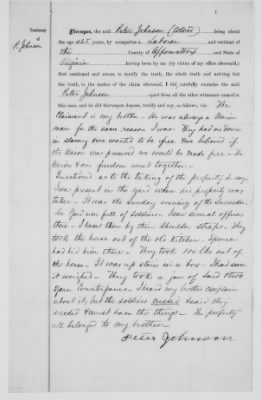 Testimony
of
P. Johnson
Thereupon, the said Peter Johnson (Colored) being about
the age years, by occupation a Laborer and resident of
the County of Appomattox and State of
Virginia having been by me (by virtue of my office aforesaid,)
first cautioned and sworn to testify the truth, the whole truth and nothing but
the truth, in the matter of the claim aforesaid, I did carefully examine the said
Peter Johnson apart from all the other witnesses named in
this case, and he did thereupon depose, testify and say, as follows, viz: The
Claimant is my brother - He was always a Union
man for the same reason I was. They had us down
in slavery & we wanted to be free & we believed if
the Union was preserved we would be made free - The
Union & our freedom went together -
Questioned as to the taking of the property he says
I was present in the yard when his property was
taken - It was the Sunday evening of the Surrender.
The yard was full of soldiers - I saw several officers
there - I knew them by their shoulder straps. They
took the horse out of the old kitchen.
had hid him there - They took 100 lbs out of
the house. It was up stairs in a box - I had seen
it weighed - They took a jar of lard & three
yarn Counterpanes. I heard my brother complain
about it, but the soldiers cussed & said they
needed & must have the things - The property
all belonged to my brother -
Peter Johnson